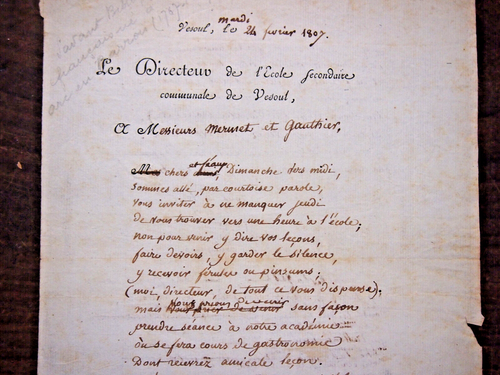 mardi
Vesoul, le 24 février 1807.
Le Directeur de l'Ecole secondaire
communale de Vesoul,
A Messieurs et Gauthier,
et féaux
Mes chers Dimanche vers midi,
Sommes allé, par courtoise parole,
vous inviter à ne manquer jeudi
de vous trouver vers une heure à l'école;
non pour venir y dire vos leçons,
faire devoirs, y garder le silence,
y recevoir férules ou pinsums.
(moi, directeur, de tout ce vous dispense);
Nous prions de venir
mais sans façon
prendre séance à notre académie
où se fera cours de gastronomie
Dont recevrez amicale leçon.